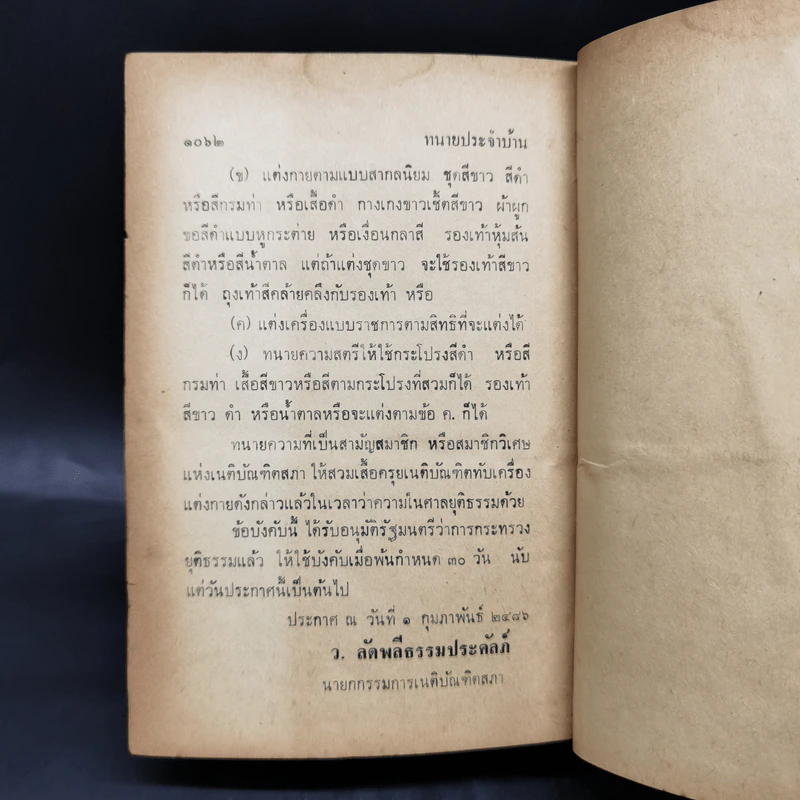 ๑๐๖๒ ทนายประจำบ้าน
(ข) แต่งกายตามแบบสากลนิยม ชุดสีขาว สีดำ
หรือสีกรมท่า หรือเสื้อดำ กางเกงขาวเชิ้ตสีขาว ผ้าผูก
ขอสีดำแบบหูกระต่าย หรือเงื่อนกลาสี รองเท้าหุ้มส้น
สีดำหรือสีน้ำตาล แต่ถ้าแต่งชุดขาว จะใช้รองเท้าสีขาว
ก็ได้ ถุงเท้าสีคล้ายคลึงกับรองเท้า หรือ
(ค) แต่งเครื่องแบบราชการตามสิทธิที่จะแต่งได้
(ง) ทนายความสตรีให้ใช้กระโปรงสีดำ หรือสี
กรมท่า เสื้อสีขาวหรือสีตามกระโปรงที่สวมก็ได้ รองเท้า
สีขาว ดำ หรือน้ำตาลหรือจะแต่งตามข้อ ค. ก็ได้
ทนายความที่เป็นสามัญสมาชิก หรือสมาชิกวิเศษ
แห่งเนติบัณฑิตสภา ให้สวมเสื้อครุยเนติบัณฑิตทับเครื่อง
แต่งกายดังกล่าวแล้วในเวลาว่าความในศาลยุติธรรมด้วย
ข้อบังคับนี้ ได้รับอนุมัติรัฐมนตรีว่าการกระทรวง
ยุติธรรมแล้ว ให้ใช้บังคับเมื่อพ้นกำหนด ๓๐ วัน นับ
แต่วันประกาศนี้เป็นต้นไป
ประกาศ ณ วันที่ ๑ กุมภาพันธ์ ๒๔๘๖
ว. ลัดพลีธรรมประคัลภ์
นายกกรรมการเนติบัณฑิตสภา